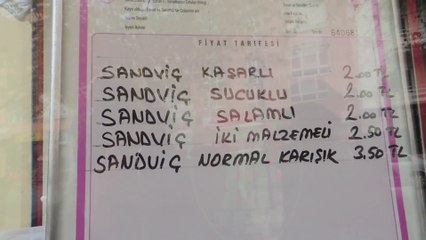 FİYAT TARİFESİ
SANDVİÇ KAŞARLI 2.00 TL
SANDVİÇ SUCUKLU 2.00 TL
SANDVİÇ SALAMLI 2.00 TL
SANDVİÇ İKİ MALZEMELİ 2.50 TL
SANDVİÇ NORMAL KARIŞIK 3.50 TL